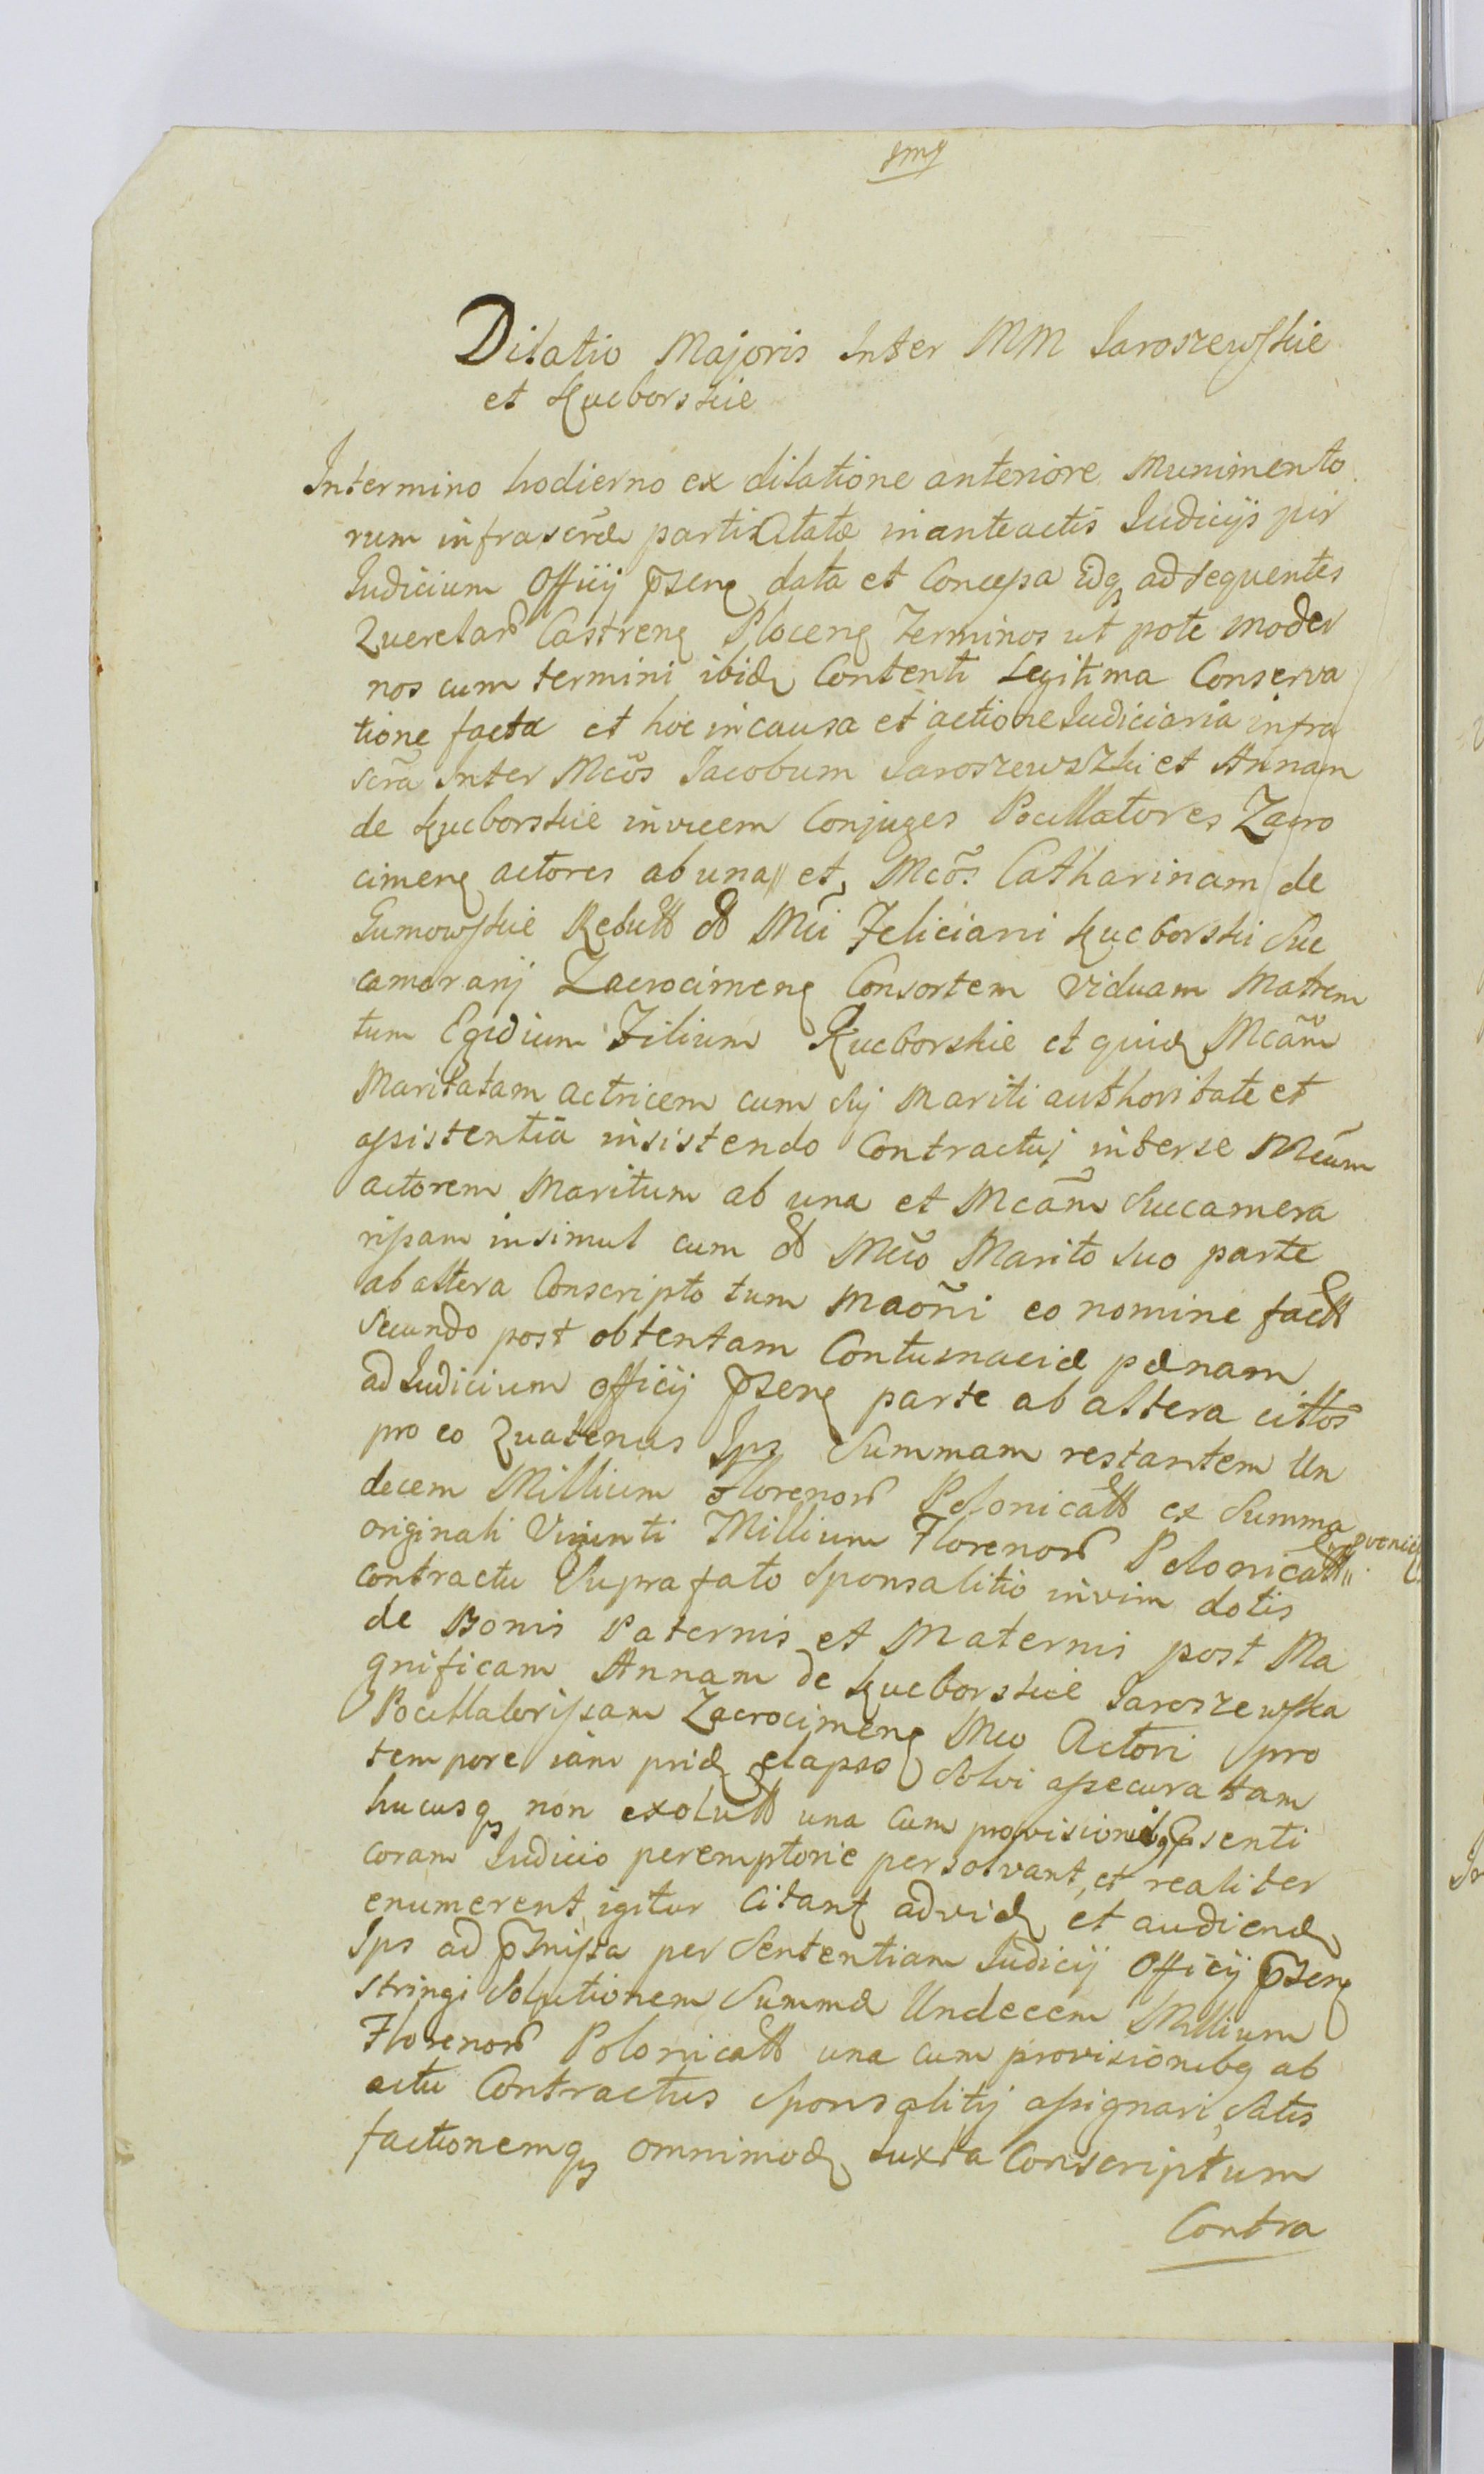 Dilatio Majoris Inter MM Iaroszewskie
et Kucborskie
Intermino hodierno ex dilatione anteriore Munimento
rum infrascrae parti Citatae in anteactis Iudicijs per
Iudicium Officij pnsens data et Concepsa idq3 ad sequentes
Querelarum Castrens Plocens Terminos ut pote moder
nos cum termini ibidem Contenti Legitima Conserva
tione facta et hoc in causa et actione Iudiciaria infra
scra Inter Mcos Iacobum Iaroszewszki et Annam
de Kucborskie invicem Conjuges Pocillatores Zacro
cimens actores ab una et Mcos Catharinam de
Gumowskie Relictt olim Mci Feliciani Kucborski Suc
camerarij Zacrocimens Consortem Viduam Matrem
tum Egidium Filium Kucborskie et quidem Mcam
Maritatam actricem cum sui Mariti authoritate et
assistentia insistendo Contractui inter se Mcum
actorem Maritum ab una et Mcam Succamera
rissam insimul cum olim Mco Marito suo parte
ab altera Conscripto tum Maoni eo nomine factt
secundo post obtentam Contumaciae paenam
ad Iudicium officij pnsens parte ab altera cittos
pro eo Quatenus Ips Summam restantem Un
decem Millium Florenorum Polonicatt ex Summa
originali Viginti Millium Florenorum Polonicatt
contractu Suprafato Sponsalitio in vim dotis
de Bonis Paternis et Maternis post Ma
gnificam Annam de Kucborskie Iaroszewska
Pocillatorissam Zacrocimens Mco Actori pro
tempore iam pridem elapso Solvi assecuratam
hucusq3 non exolutt una cum provisionibq psenti
coram Iudicio peremptorie persolvant, et realiter
enumerent, igitur Citant ad viden et audiend
Ips ad pmissa per Sententiam Iudicij Officij pnsens
stringi Solutionem Summae Undecem Millium
Florenorum Polonicatt una cum provisionibq ab
actu Contractus Sponsalitij assignari, Satis
factionemq3 omnimod Iuxta Conscriptum
Contra